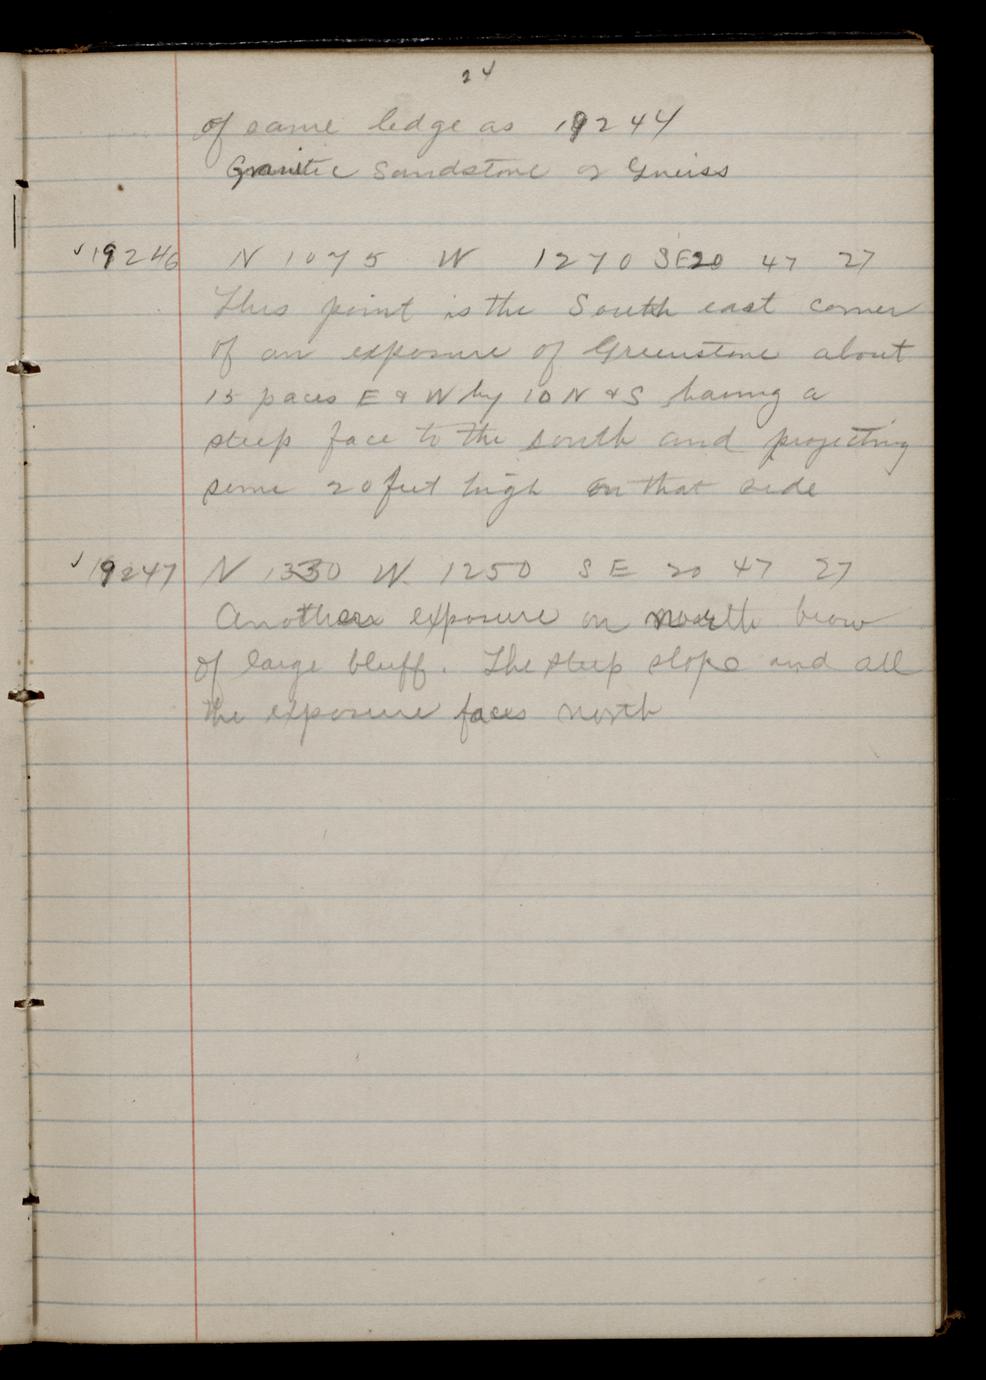 24
of same ledge as 19244
Granitic Sandstone or Gneiss
✓19246 N 1075 W 1270 SE 20 47 27
This point is the South east corner
of an exposure of Greenstone about
15 paces E & W by 10 N & S having a
steep face to the south and projecting
some 20 feet high on that side
✓19247 N 1330 W 1250 S E 20 47 27
Another exposure on north brow
of large bluff. The steep slope and all
the exposure faces north